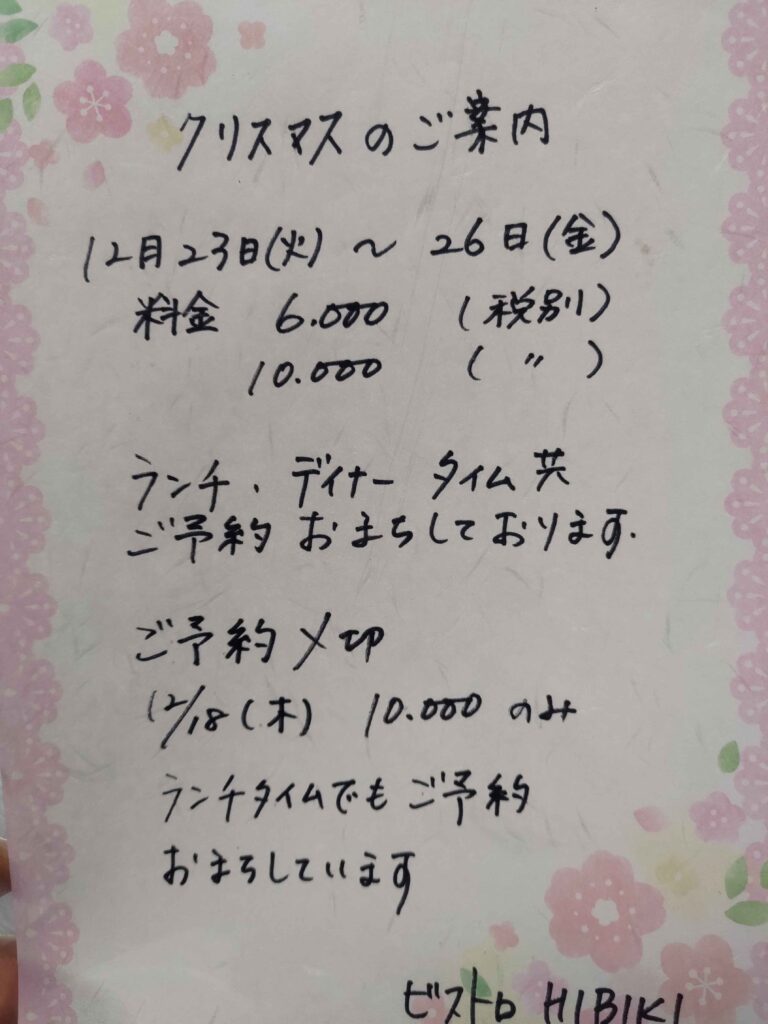 クリスマスのご案内
12月23日(火) ~ 26日(金)
料金 6.000 (税別)
10.000 ( 〃 )
ランチ、ディナー タイム共
ご予約 おまちしております.
ご予約〆切
12/18(木) 10.000 のみ
ランチタイムでもご予約
おまちしています
ビストロ HIBIKI